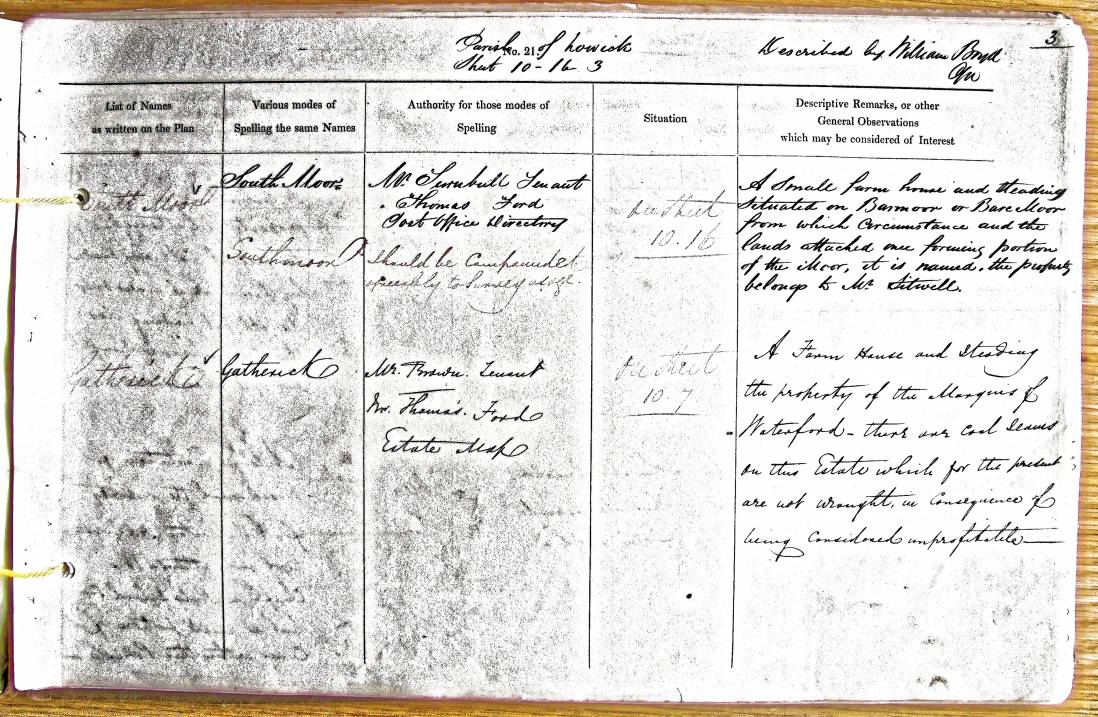 Parish No. 21 of Lowick
Sheet 10-16 3
Described by William Boyd
3
List of Names
as written on the Plan
Various modes of
Spelling the same Names
Authority for those modes of
Spelling
Situation
Descriptive Remarks, or other
General Observations
which may be considered of Interest
South Moor
South Moor
Mr. Turnbull Tenant
" Thomas Ford
Post Office Directory
Southmoor
should be Compounded
agreeably to
See Sheet
10.16
A Small farm house and Steading
Situated on Barmoor or Bare Moor
from which Circumstance and the
lands attached once forming portion
of the Moor, it is named. the property
belongs to Mr. Sitwell.
Gatherick
Gatherick
Mr. Brown. Tenant
Mr. Thomas. Ford
Estate Map
See Sheet
10.7
A Farm House and Steading
the property of the Marquis of
Waterford - there are Coal Seams
on this Estate which for the present
are not wrought, in Consequence of
being Considered unprofitable